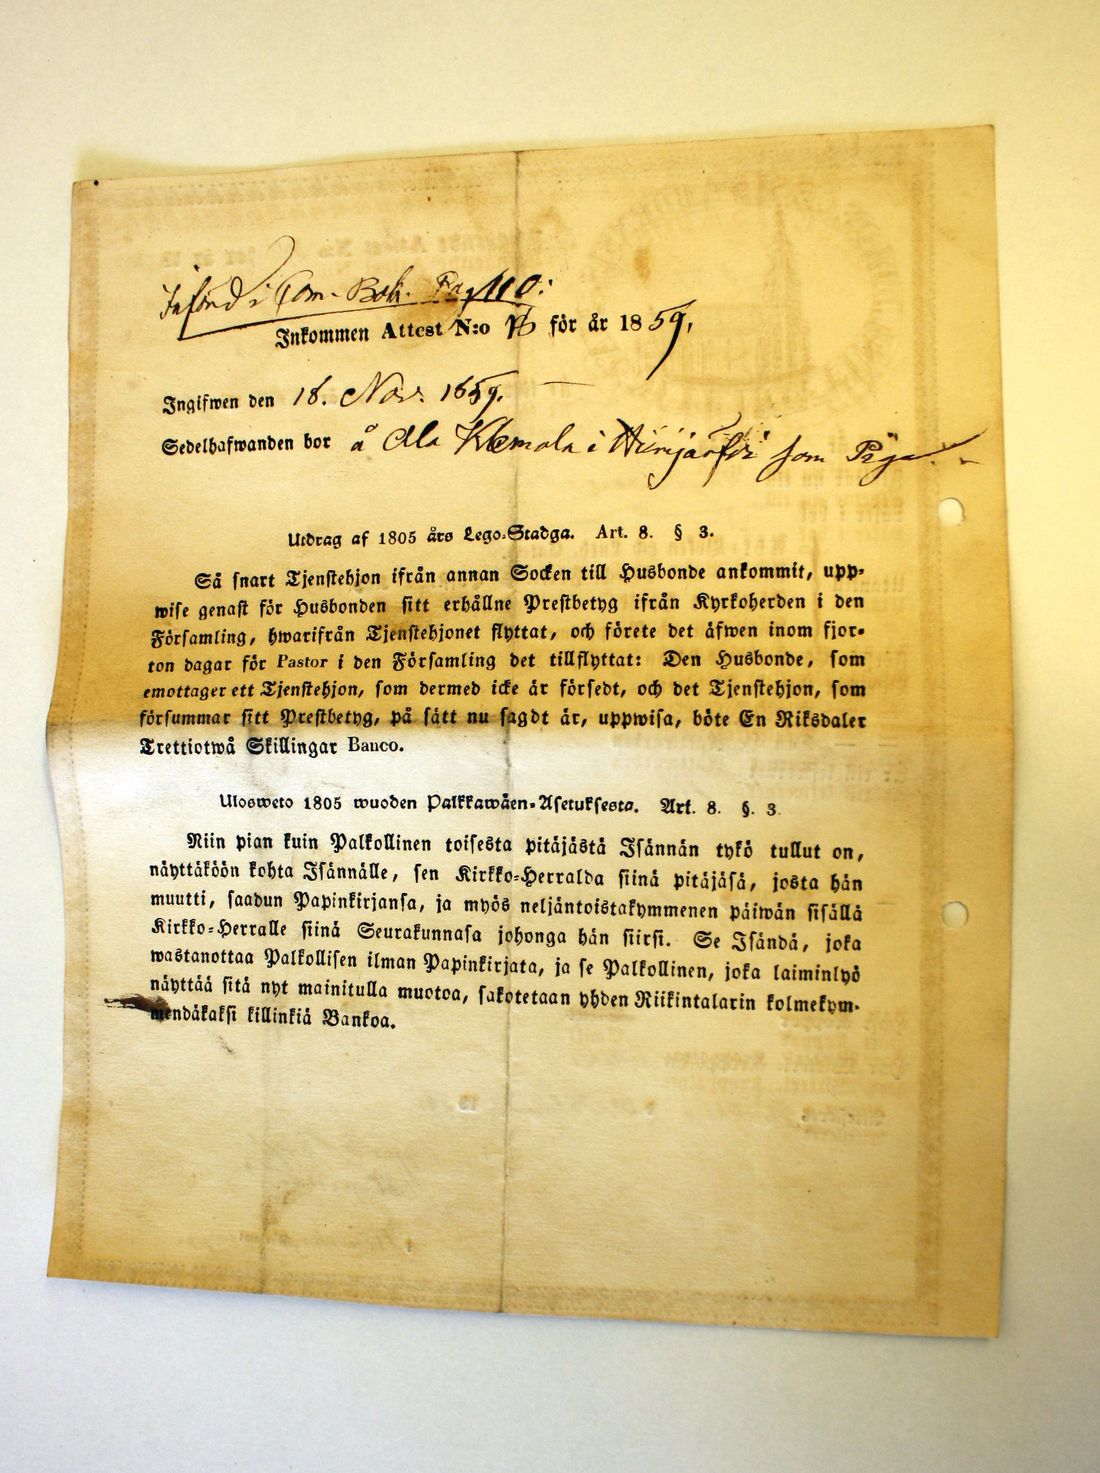 Införd i Com. Bok. Pag 110.
Inkommen Attest N:o för år 1859,
Ingifwen den 18. Nov. 1859.
Sedelhafwanden bor å Ala Klemola i som Piga.
Utdrag af 1805 års Lego-Stadga. Art. 8. § 3.
Så snart Tjenstehjon ifrån annan Socken till Husbonde ankommit, upp-
wise genast för Husbonden sitt erhållne Prestbetyg ifrån Kyrkoherden i den
Församling, hwarifrån Tjenstehjonet flyttat, och förete det äfwen inom fjor-
ton dagar för Pastor i den Församling det tillflyttat: Den Husbonde, som
emottager ett Tjenstehjon, som dermed icke är försedt, och det Tjenstehjon, som
försummar sitt Prestbetyg, på sätt nu sagdt är, uppwisa, böte En Riksdaler
Trettiotwå Skillingar Banco.
Ulosweto 1805 wuoden Palkkawäen-Asetuksesta. Art. 8. §. 3.
Niin pian kuin Palkollinen toisesta pitäjästä Isännän tykö tullut on,
näyttäköön kohta Isännälle, sen Kirkko-Herralda siinä pitäjäsä, josta hän
muutti, saadun Papinkirjansa, ja myös neljäntoistakymmenen päiwän sisällä
Kirkko-Herralle siinä Seurakunnasa johonga hän siirsi. Se Isändä, joka
wastanottaa Palkollisen ilman Papinkirjata, ja se Palkollinen, joka laiminlyö
näyttää sitä nyt mainitulla muotoa, sakotetaan yhden Riikintalarin kolmekym-
mendäkaksi killinkiä Bankoa.